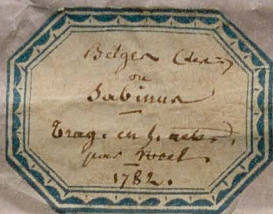 Belges (les)
ou
Sabinus
Trag. en 5. actes,
par Noel.
1782.